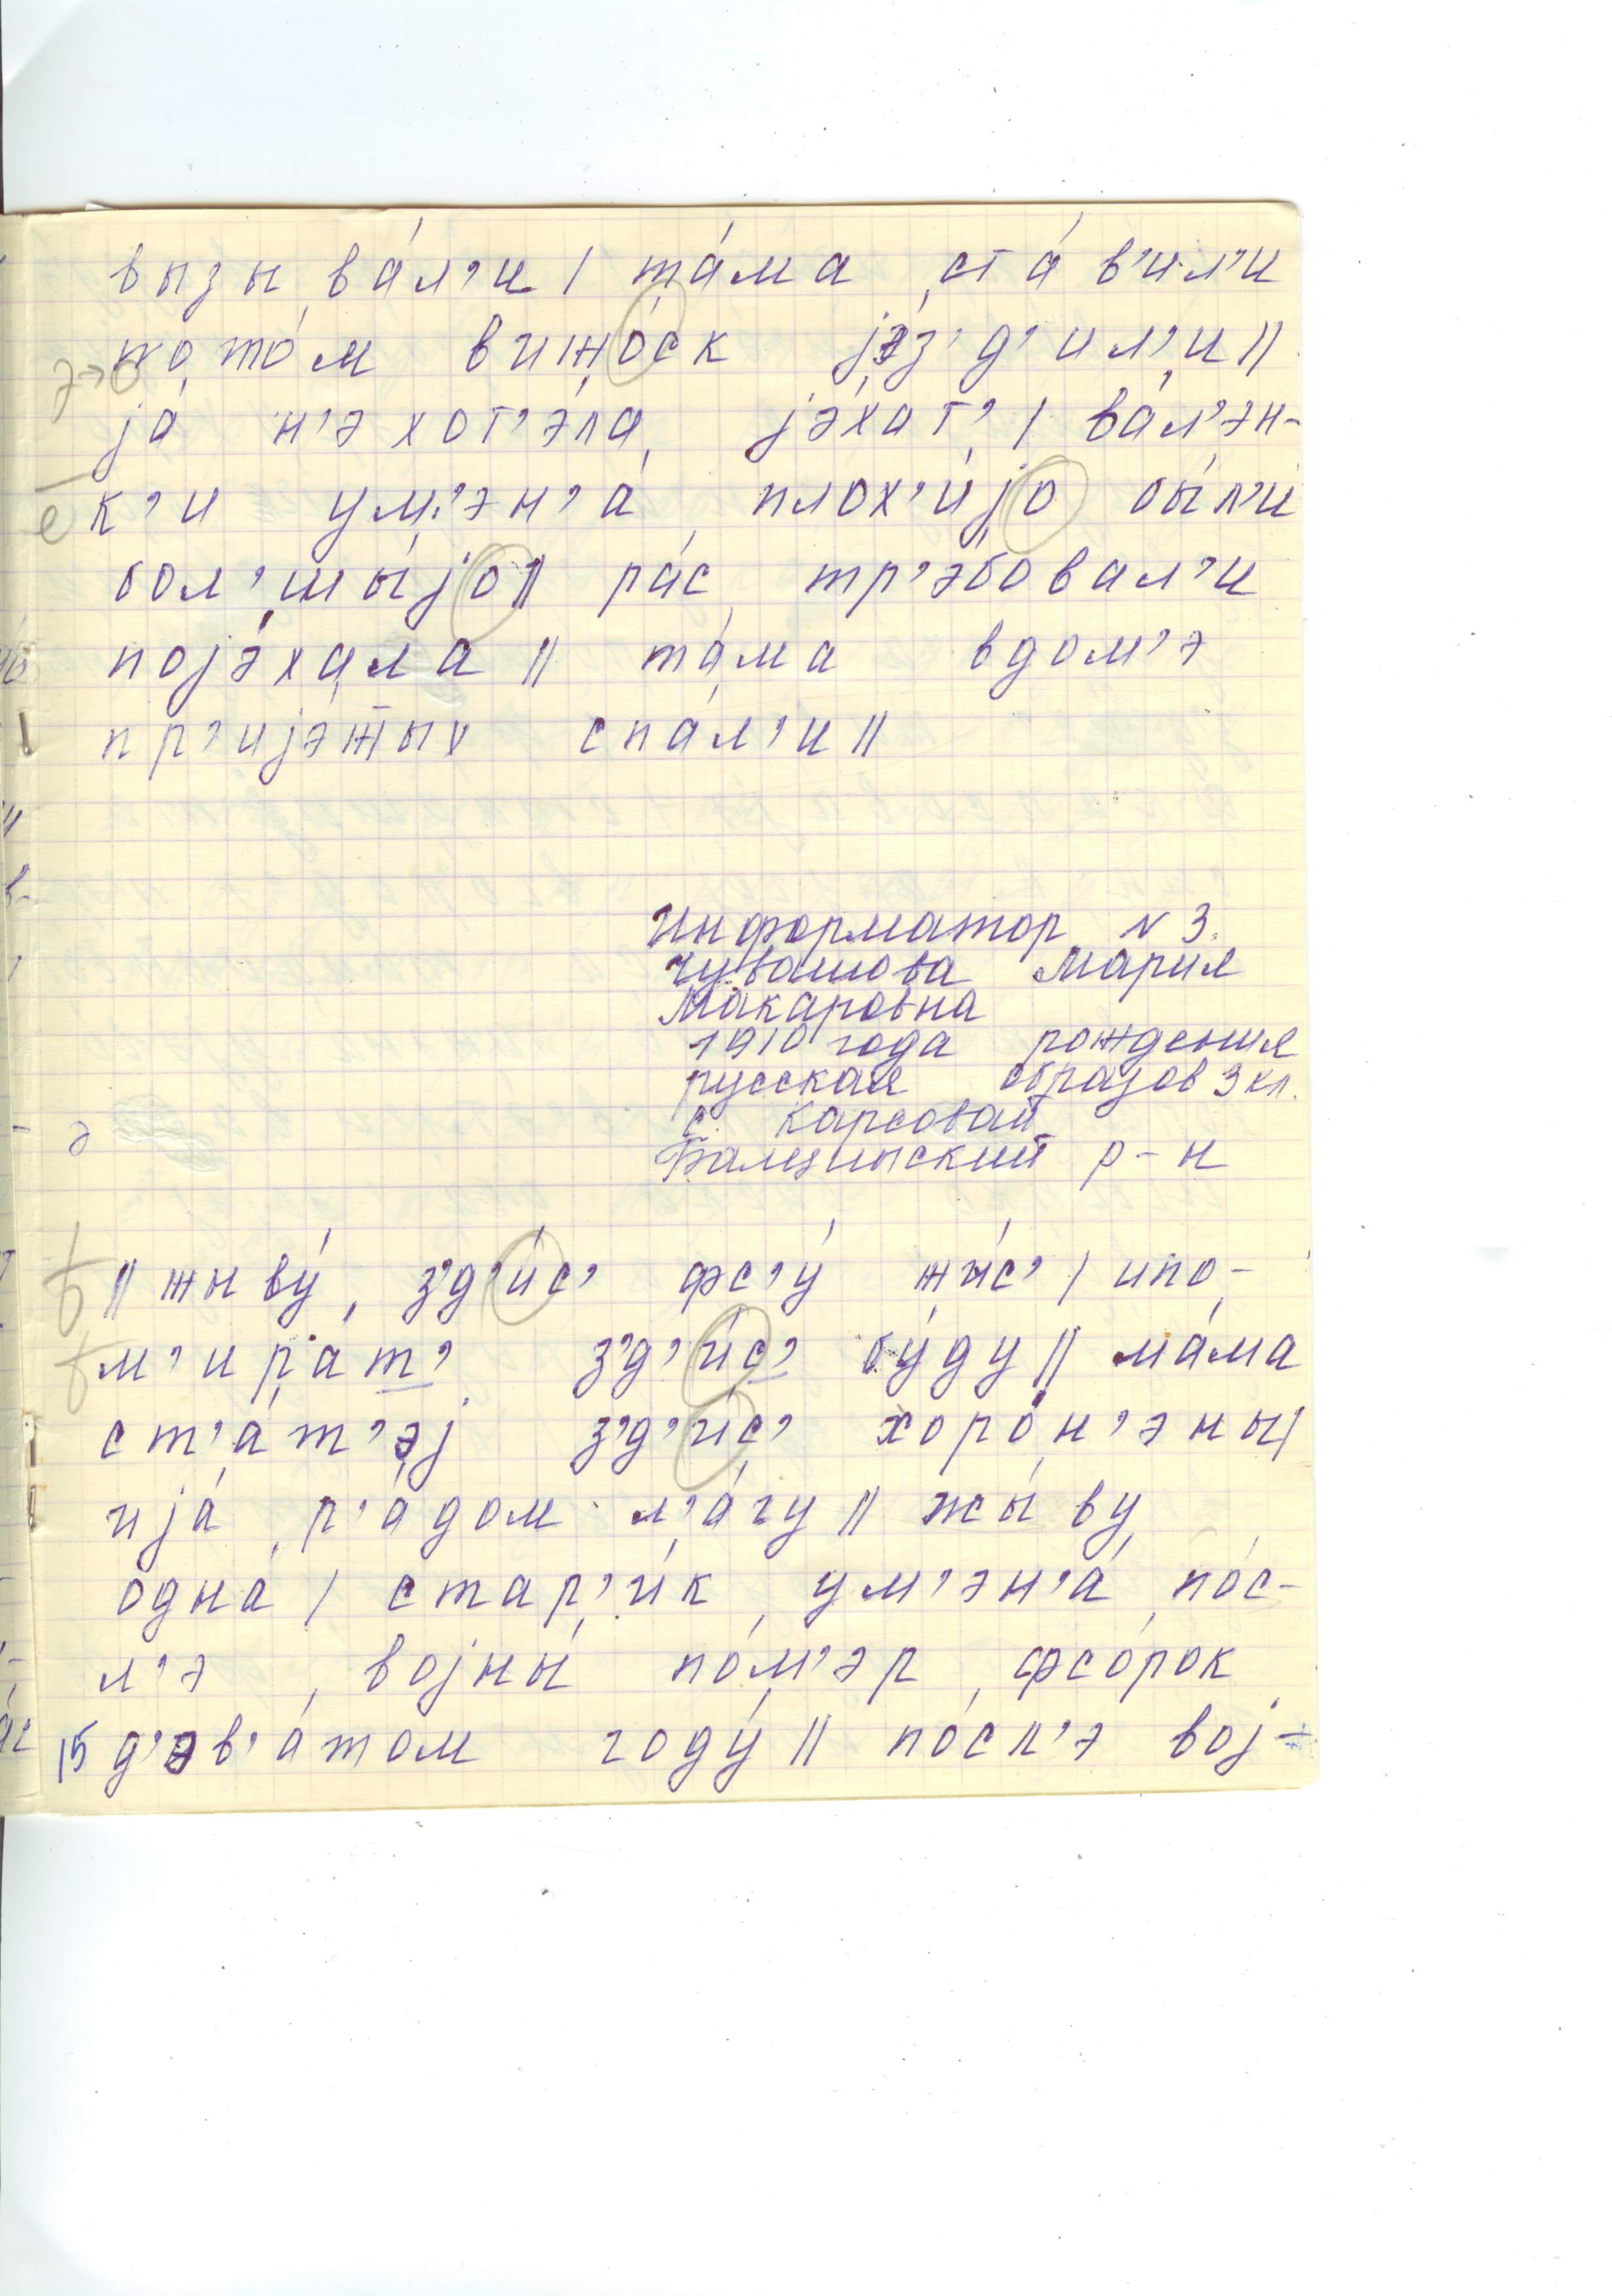 вызывáл’и / тáма стáв’ил’и
потóм вижóск jэ́з’д’ил’и ||
já н’э хот’э́ла jэ́хат’ / вáл’эн-
к’и ум’эн’á плох’и́jо бы́л’и
бол’шы́jо || рáс тр’э́бовал’и
поjэ́хала || тáма вдом’э
пр’иjэ́жжых спáл’и ||
Информатор N 3.
Чувашова Мария
Макаровна
1910 года рождения
русская образов 3 кл.
с. Карсовай
Балезинский р-н
|| жывý з’д’и́с’ фс’ý жы́с’ / ипо-
м’ирáт’ з’д’и́с’ бýду || мáма
ст’áт’эj з’д’и́с’ хорóн’эны |
иjá р’áдом л’áгу || жы́ву
однá / стар’и́к ум’эн’á пóс-
л’э воjны́ пóм’эр фсóрок
15 д’эв’áтом годý || пóсл’э воj-